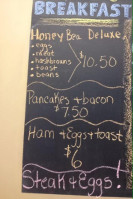 BREAKFAST
Honey Bea Deluxe
• eggs
• meat
• hashbrowns
• toast
• beans
$10.50
Pancakes + bacon
$7.50
Ham + Eggs + toast
$6
Steak + Eggs!